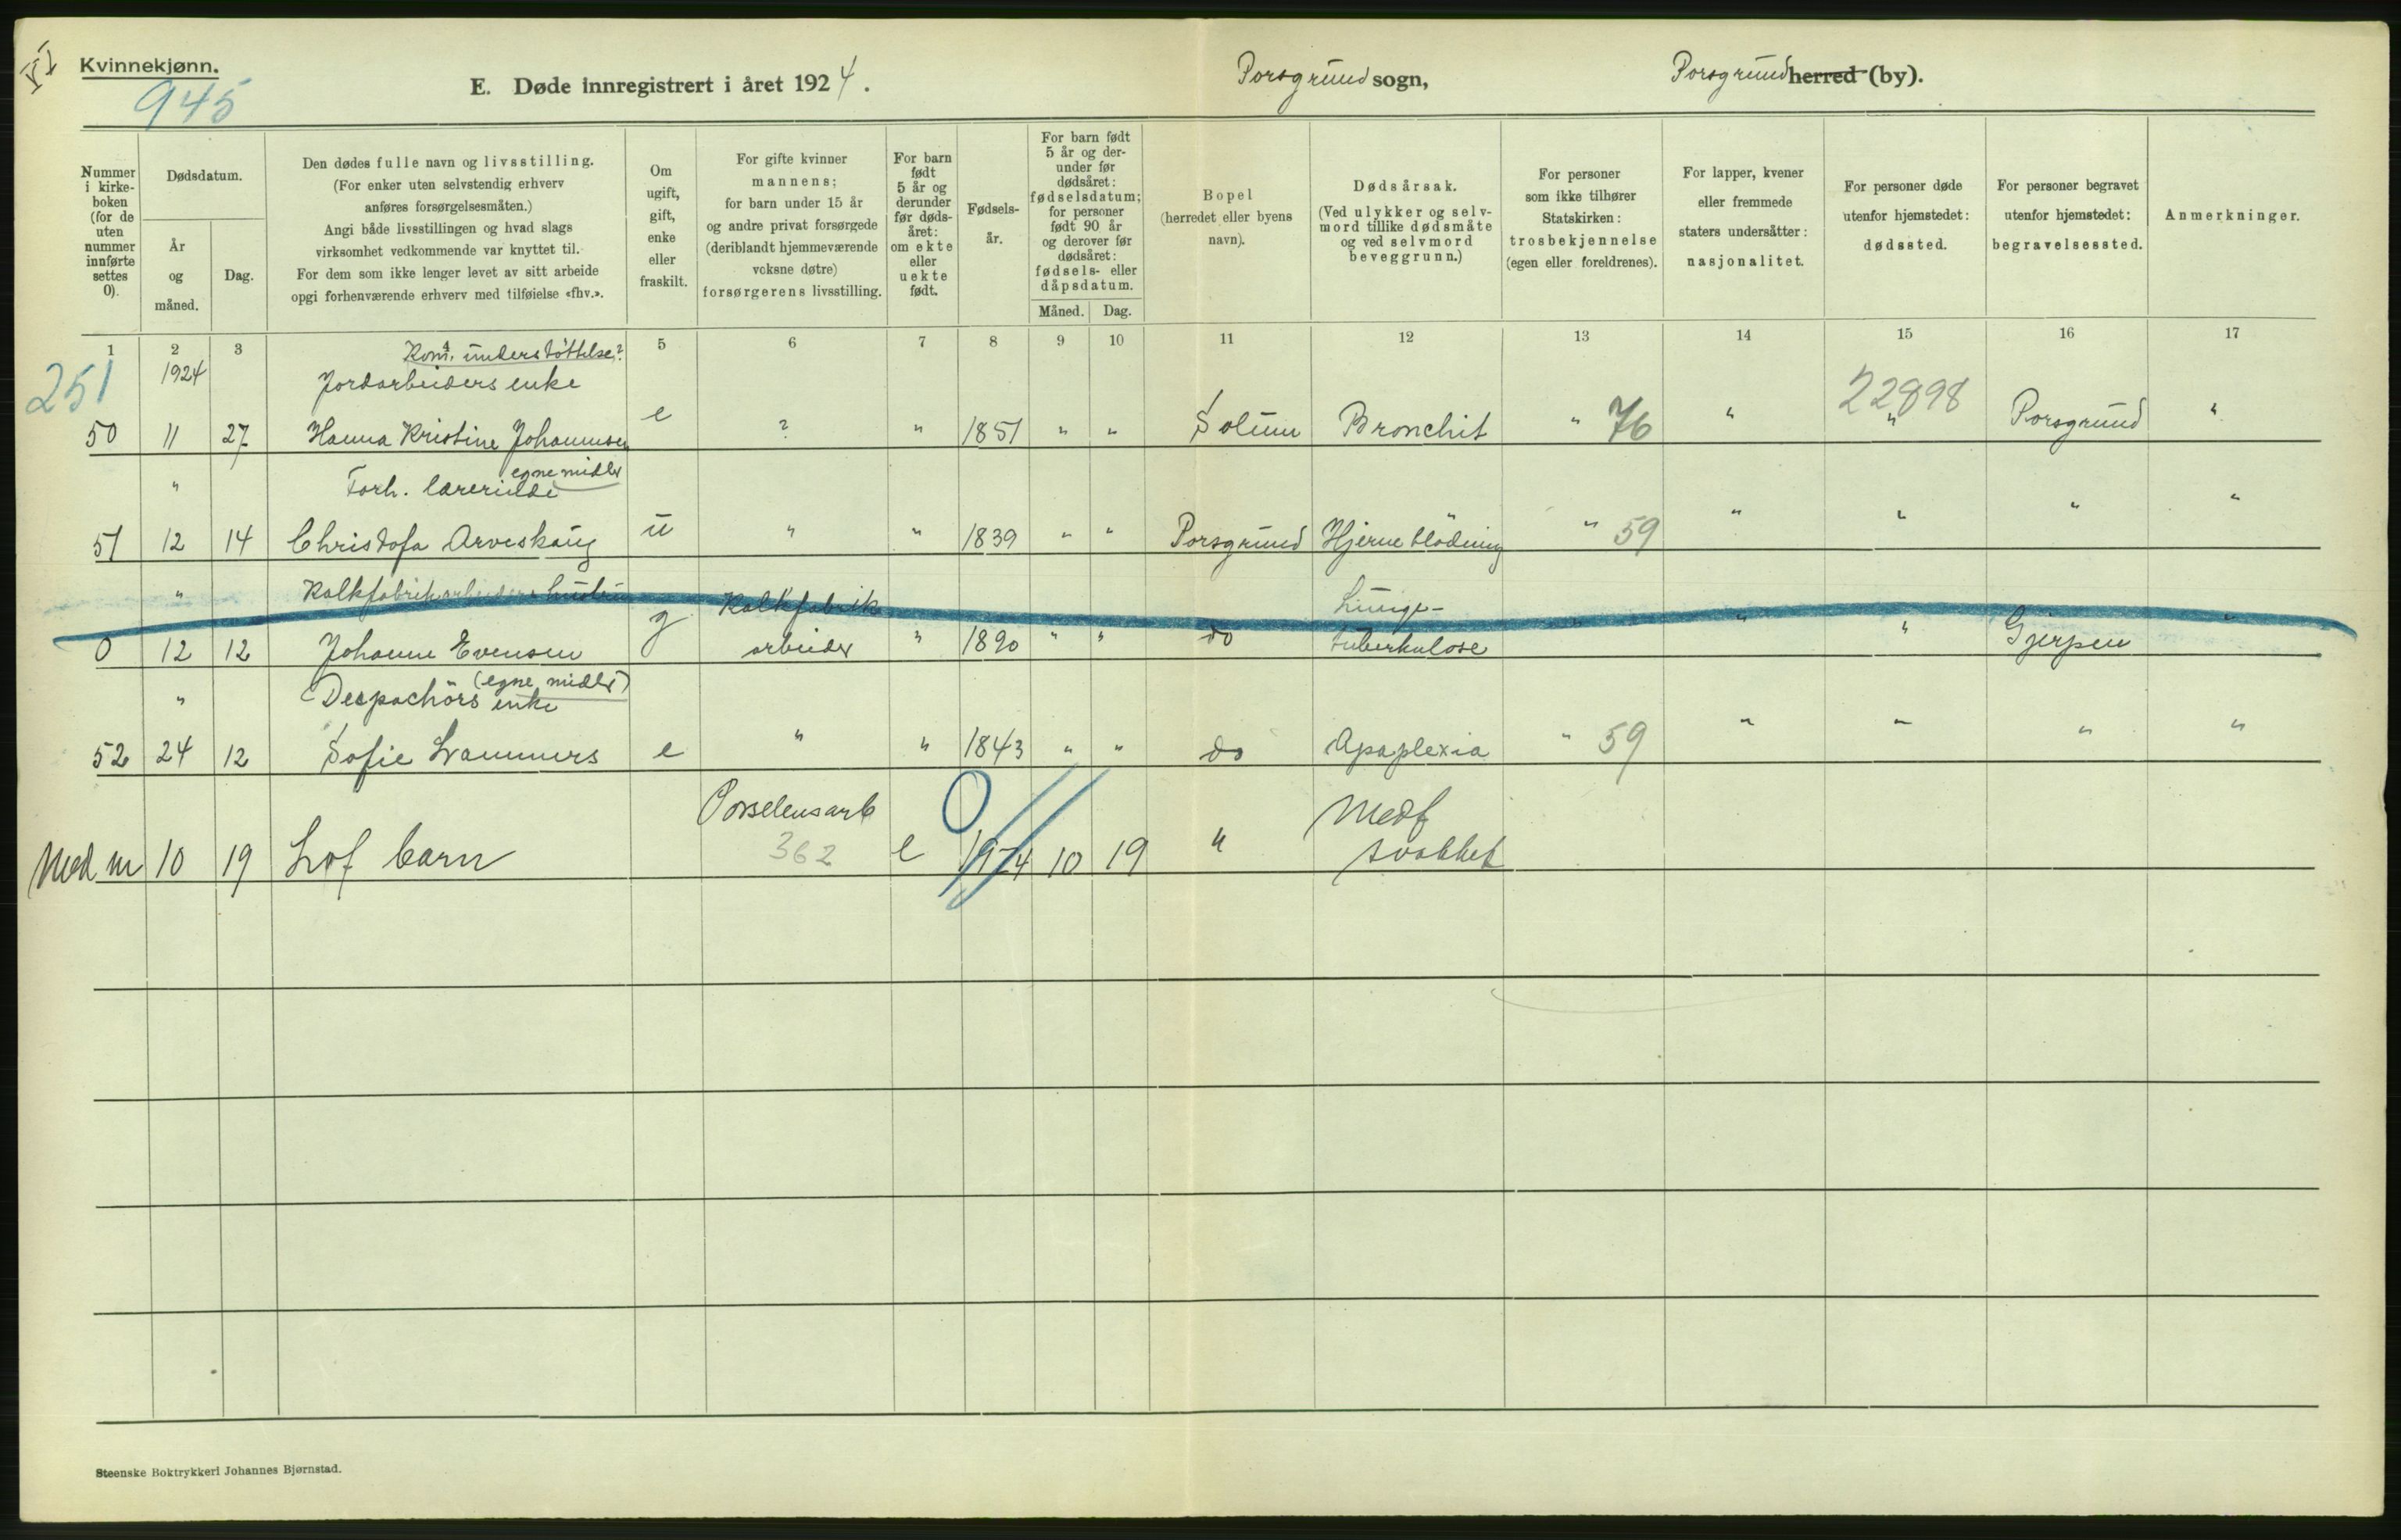 VI
Kvinnekjønn.
945
E. Døde innregistrert i året 1924.
Porsgrund sogn,
Porsgrund herred (by).
Nummer i kirke-boken (for de uten nummer innførte settes 0).
Dødsdatum.
År og måned.
Dag.
Den dødes fulle navn og livsstilling.
(For enker uten selvstendig erhverv
anføres forsørgelsesmåten.)
Angi både livsstillingen og hvad slags
virksomhet vedkommende var knyttet til.
For dem som ikke lenger levet av sitt arbeide
opgi forhenværende erhverv med tilføielse «fhv.».
Om ugift, gift, enke eller fraskilt.
For gifte kvinner
mannens;
for barn under 15 år
og andre privat forsørgede
(deriblandt hjemmeværende
voksne døtre)
forsørgerens livsstilling.
For barn født 5 år og derunder før døds-året: om ekte eller uekte født.
Fødsels-år.
For barn født 5 år og der-under før dødsåret: fødselsdatum; for personer født 90 år og derover før dødsåret: fødsels- eller dåpsdatum.
Måned. Dag.
Bopel
(herredet eller byens
navn).
Dødsårsak.
(Ved ulykker og selv-
mord tillike dødsmåte
og ved selvmord
beveggrunn.)
For personer
som ikke tilhører
Statskirken:
trosbekjennelse
(egen eller foreldrenes).
For lapper, kvener
eller fremmede
staters undersåtter:
nasjonalitet.
For personer døde
utenfor hjemstedet:
dødssted.
For personer begravet
utenfor hjemstedet:
begravelsessted.
Anmerkninger.
1 2 3 4 5 6 7 8 9 10 11 12 13 14 15 16 17
Kom. understöttelse?
251 1924 Jordarbeiders enke 22898
50 11 27 Hanna Kristine Johannsen e ? " 1851 " " Solum Bronchit " 76 " " Porsgrund "
egne midler
" Forh. lærerinde
51 12 14 Christofa Arveskaug u " " 1839 " " Porsgrund Hjerneblödning " 59 " " " "
" Kalkfabrikarbeiders hustru Kalkfabrik Lunge-
0 12 12 Johanne Evensen g arbeider " 1890 " " do tuberkulose " " " Gjerpen "
(egne midler)
" Despachörs enke
52 24 12 Sofie Lammers e " " 1843 " " do Apaplexia " 59 " " " "
Porselensarb 0 Medf
Med m 10 19 Lof barn 362 e 1924 10 19 " svakhet
Steenske Boktrykkeri Johannes Bjørnstad.